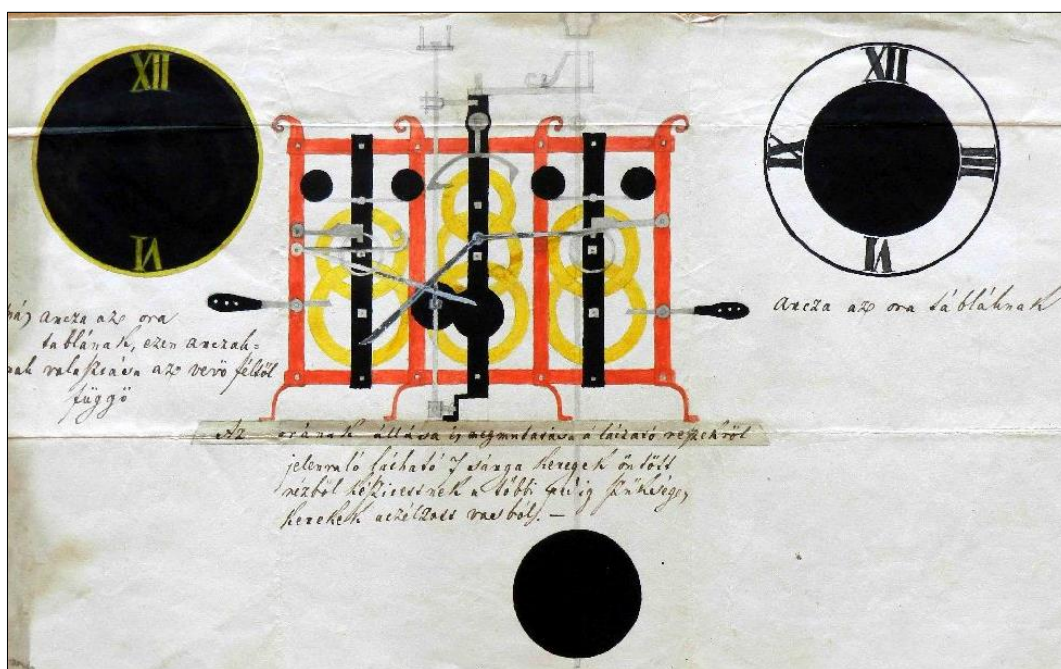 XII
VI
XII
III
VI
IX
arcza az ora
táblának, ezen arczak=
nak valasztása az vevö féltöl
függö
arcza az ora táblának
Az orának állása és megmutatása á látzató reszekröl
jelenvaló látható 7 sárga keregek öntött
rézböl készitessenek a többi pedig szükséges
kerekek aczélzott vasból. —